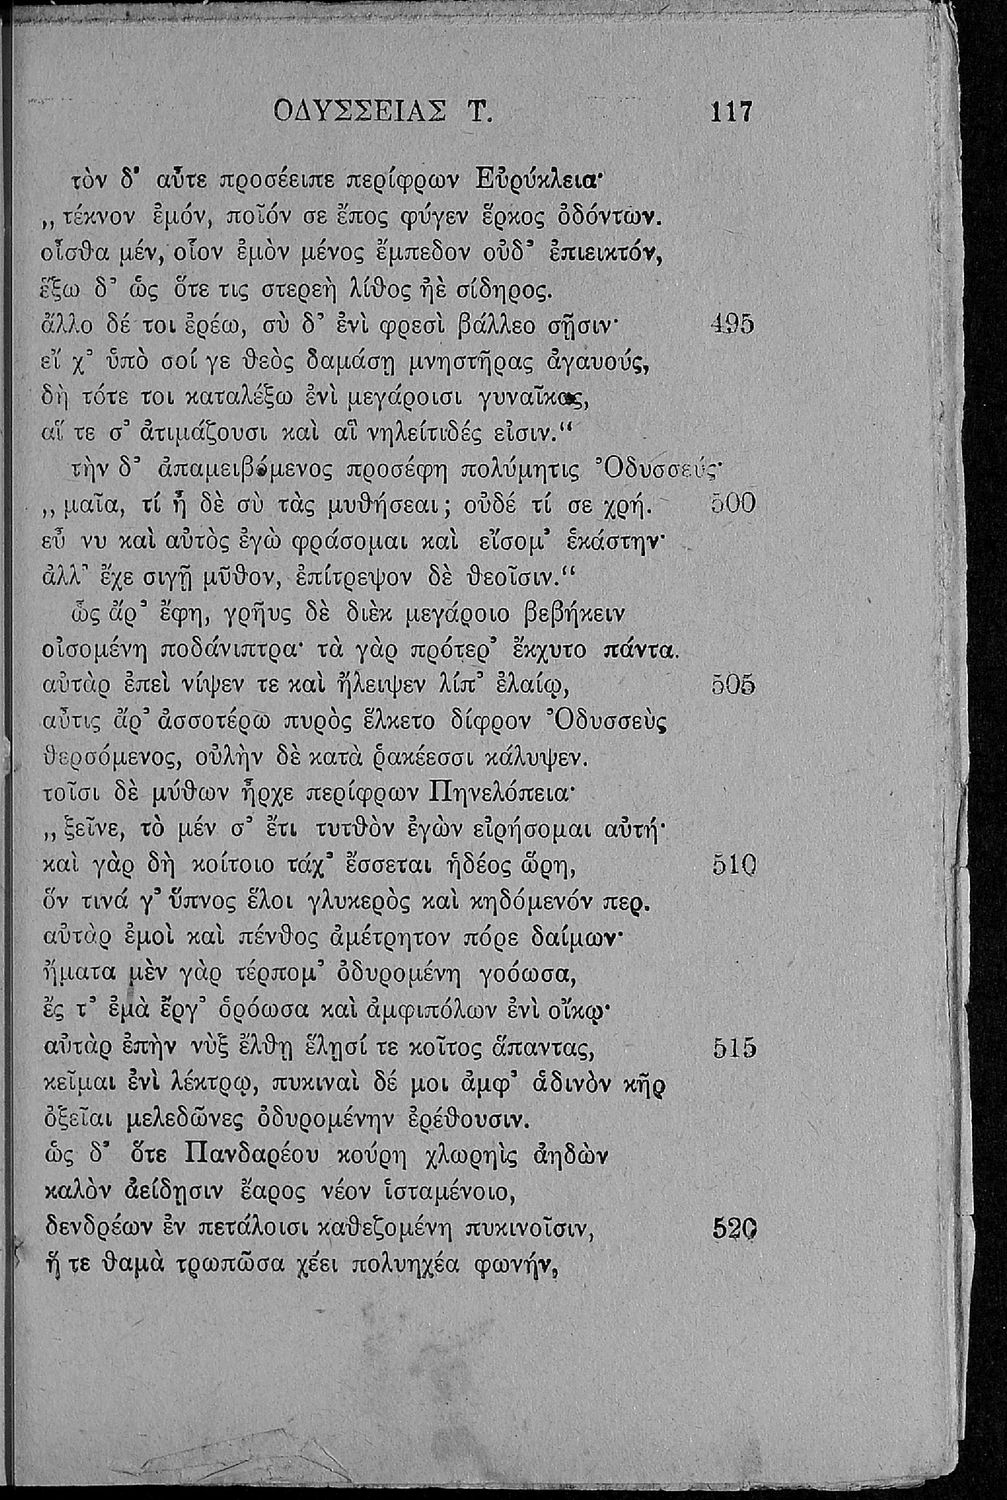 ΟΔΥΣΣΕΙΑΣ Τ. 117
τὸν δ’ αὖτε προσέειπε περίφρων Εὐρύκλεια·
„τέκνον ἐμόν, ποῖόν σε ἔπος φύγεν ἕρκος ὀδόντων.
οἶσθα μέν, οἷον ἐμὸν μένος ἔμπεδον οὐδ’ ἐπιεικτόν,
ἕξω δ’ ὡς ὅτε τις στερεὴ λίθος ἠὲ σίδηρος.
ἄλλο δέ τοι ἐρέω, σὺ δ’ ἐνὶ φρεσὶ βάλλεο σῇσιν· 495
εἴ χ’ ὑπὸ σοί γε θεὸς δαμάσῃ μνηστῆρας ἀγαυούς,
δὴ τότε τοι καταλέξω ἐνὶ μεγάροισι γυναῖκας,
αἵ τε σ’ ἀτιμάζουσι καὶ αἳ νηλείτιδές εἰσιν.“
τὴν δ’ ἀπαμειβόμενος προσέφη πολύμητις Ὀδυσσεύς·
„μαῖα, τί ἦ δὲ σὺ τὰς μυθήσεαι; οὐδέ τί σε χρή. 500
εὖ νυ καὶ αὐτὸς ἐγὼ φράσομαι καὶ εἴσομ’ ἑκάστην·
ἀλλ’ ἔχε σιγῇ μῦθον, ἐπίτρεψον δὲ θεοῖσιν.“
ὣς ἄρ’ ἔφη, γρῆυς δὲ διὲκ μεγάροιο βεβήκειν
οἰσομένη ποδάνιπτρα· τὰ γὰρ πρότερ’ ἔκχυτο πάντα.
αὐτὰρ ἐπεὶ νίψεν τε καὶ ἤλειψεν λίπ’ ἐλαίῳ, 505
αὖτις ἄρ’ ἀσσοτέρω πυρὸς ἕλκετο δίφρον Ὀδυσσεὺς
θερσόμενος, οὐλὴν δὲ κατὰ ῥακέεσσι κάλυψεν.
τοῖσι δὲ μύθων ἦρχε περίφρων Πηνελόπεια·
„ξεῖνε, τὸ μέν σ’ ἔτι τυτθὸν ἐγὼν εἰρήσομαι αὐτή·
καὶ γὰρ δὴ κοίτοιο τάχ’ ἔσσεται ἡδέος ὥρη, 510
ὅν τινά γ’ ὕπνος ἕλοι γλυκερὸς καὶ κηδόμενόν περ.
αὐτὰρ ἐμοὶ καὶ πένθος ἀμέτρητον πόρε δαίμων·
ἤματα μὲν γὰρ τέρπομ’ ὀδυρομένη γοόωσα,
ἔς τ’ ἐμὰ ἔργ’ ὁρόωσα καὶ ἀμφιπόλων ἐνὶ οἴκῳ·
αὐτὰρ ἐπὴν νὺξ ἔλθῃ ἕλῃσί τε κοῖτος ἅπαντας, 515
κεῖμαι ἐνὶ λέκτρῳ, πυκιναὶ δέ μοι ἀμφ’ ἁδινὸν κῆρ
ὀξεῖαι μελεδῶνες ὀδυρομένην ἐρέθουσιν.
ὡς δ’ ὅτε Πανδαρέου κούρη χλωρηὶς ἀηδὼν
καλὸν ἀείδῃσιν ἔαρος νέον ἱσταμένοιο,
δενδρέων ἐν πετάλοισι καθεζομένη πυκινοῖσιν, 520
ἥ τε θαμὰ τρωπῶσα χέει πολυηχέα φωνήν,